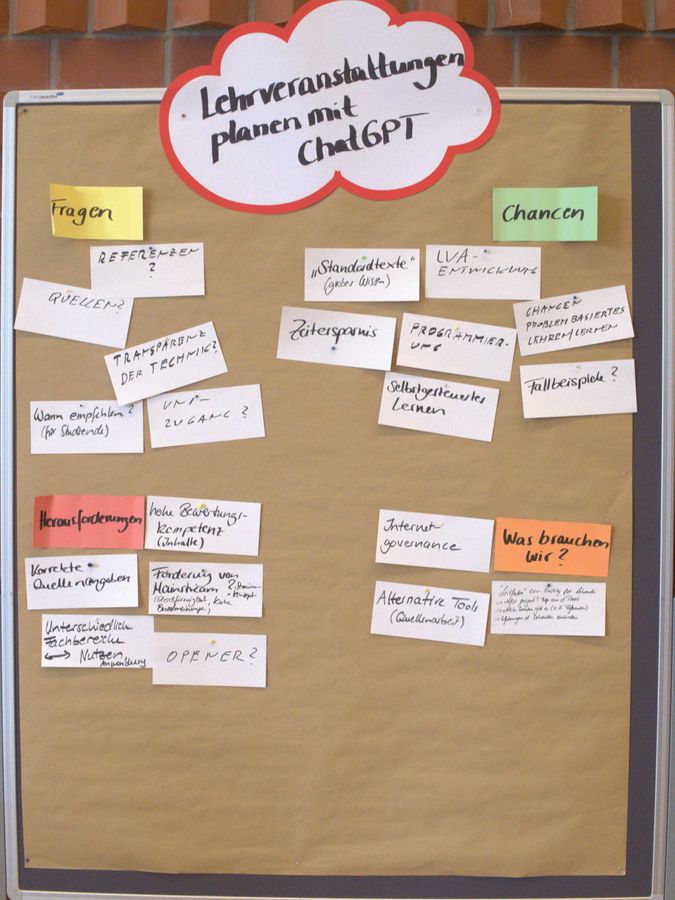 Lehrveranstaltungen
planen mit
ChatGPT
Fragen
REFERENZEN
?
QUELLEN?
TRANSPARENZ
DER TECHNIK?
Wann empfehlen?
(für Studierende)
UNI-
ZUGANG?
Chancen
„Standardtexte"
(großer Wissen)
LVA-
ENTWICKLUNG
Zeitersparnis
PROGRAMMIER-
UNG
CHANCEN
PROBLEMBASIERTES
LEHREN/LERNEN
Selbstgesteuertes
Lernen
Fallbeispiele?
Herausforderungen
hohe Bewertungs-
kompetenz
(Inhalte)
Korrekte
Quellenangaben
Förderung von
Mainstream?
(Gleichförmigkeit keine
Unterschiedliche
Fachbereiche
↔ Nutzen
Anwendung
OPENER?
Internet-
governance
Was brauchen
wir?
Alternative Tools
(Quellenarbeit)
"Leitfaden" für Lehrende